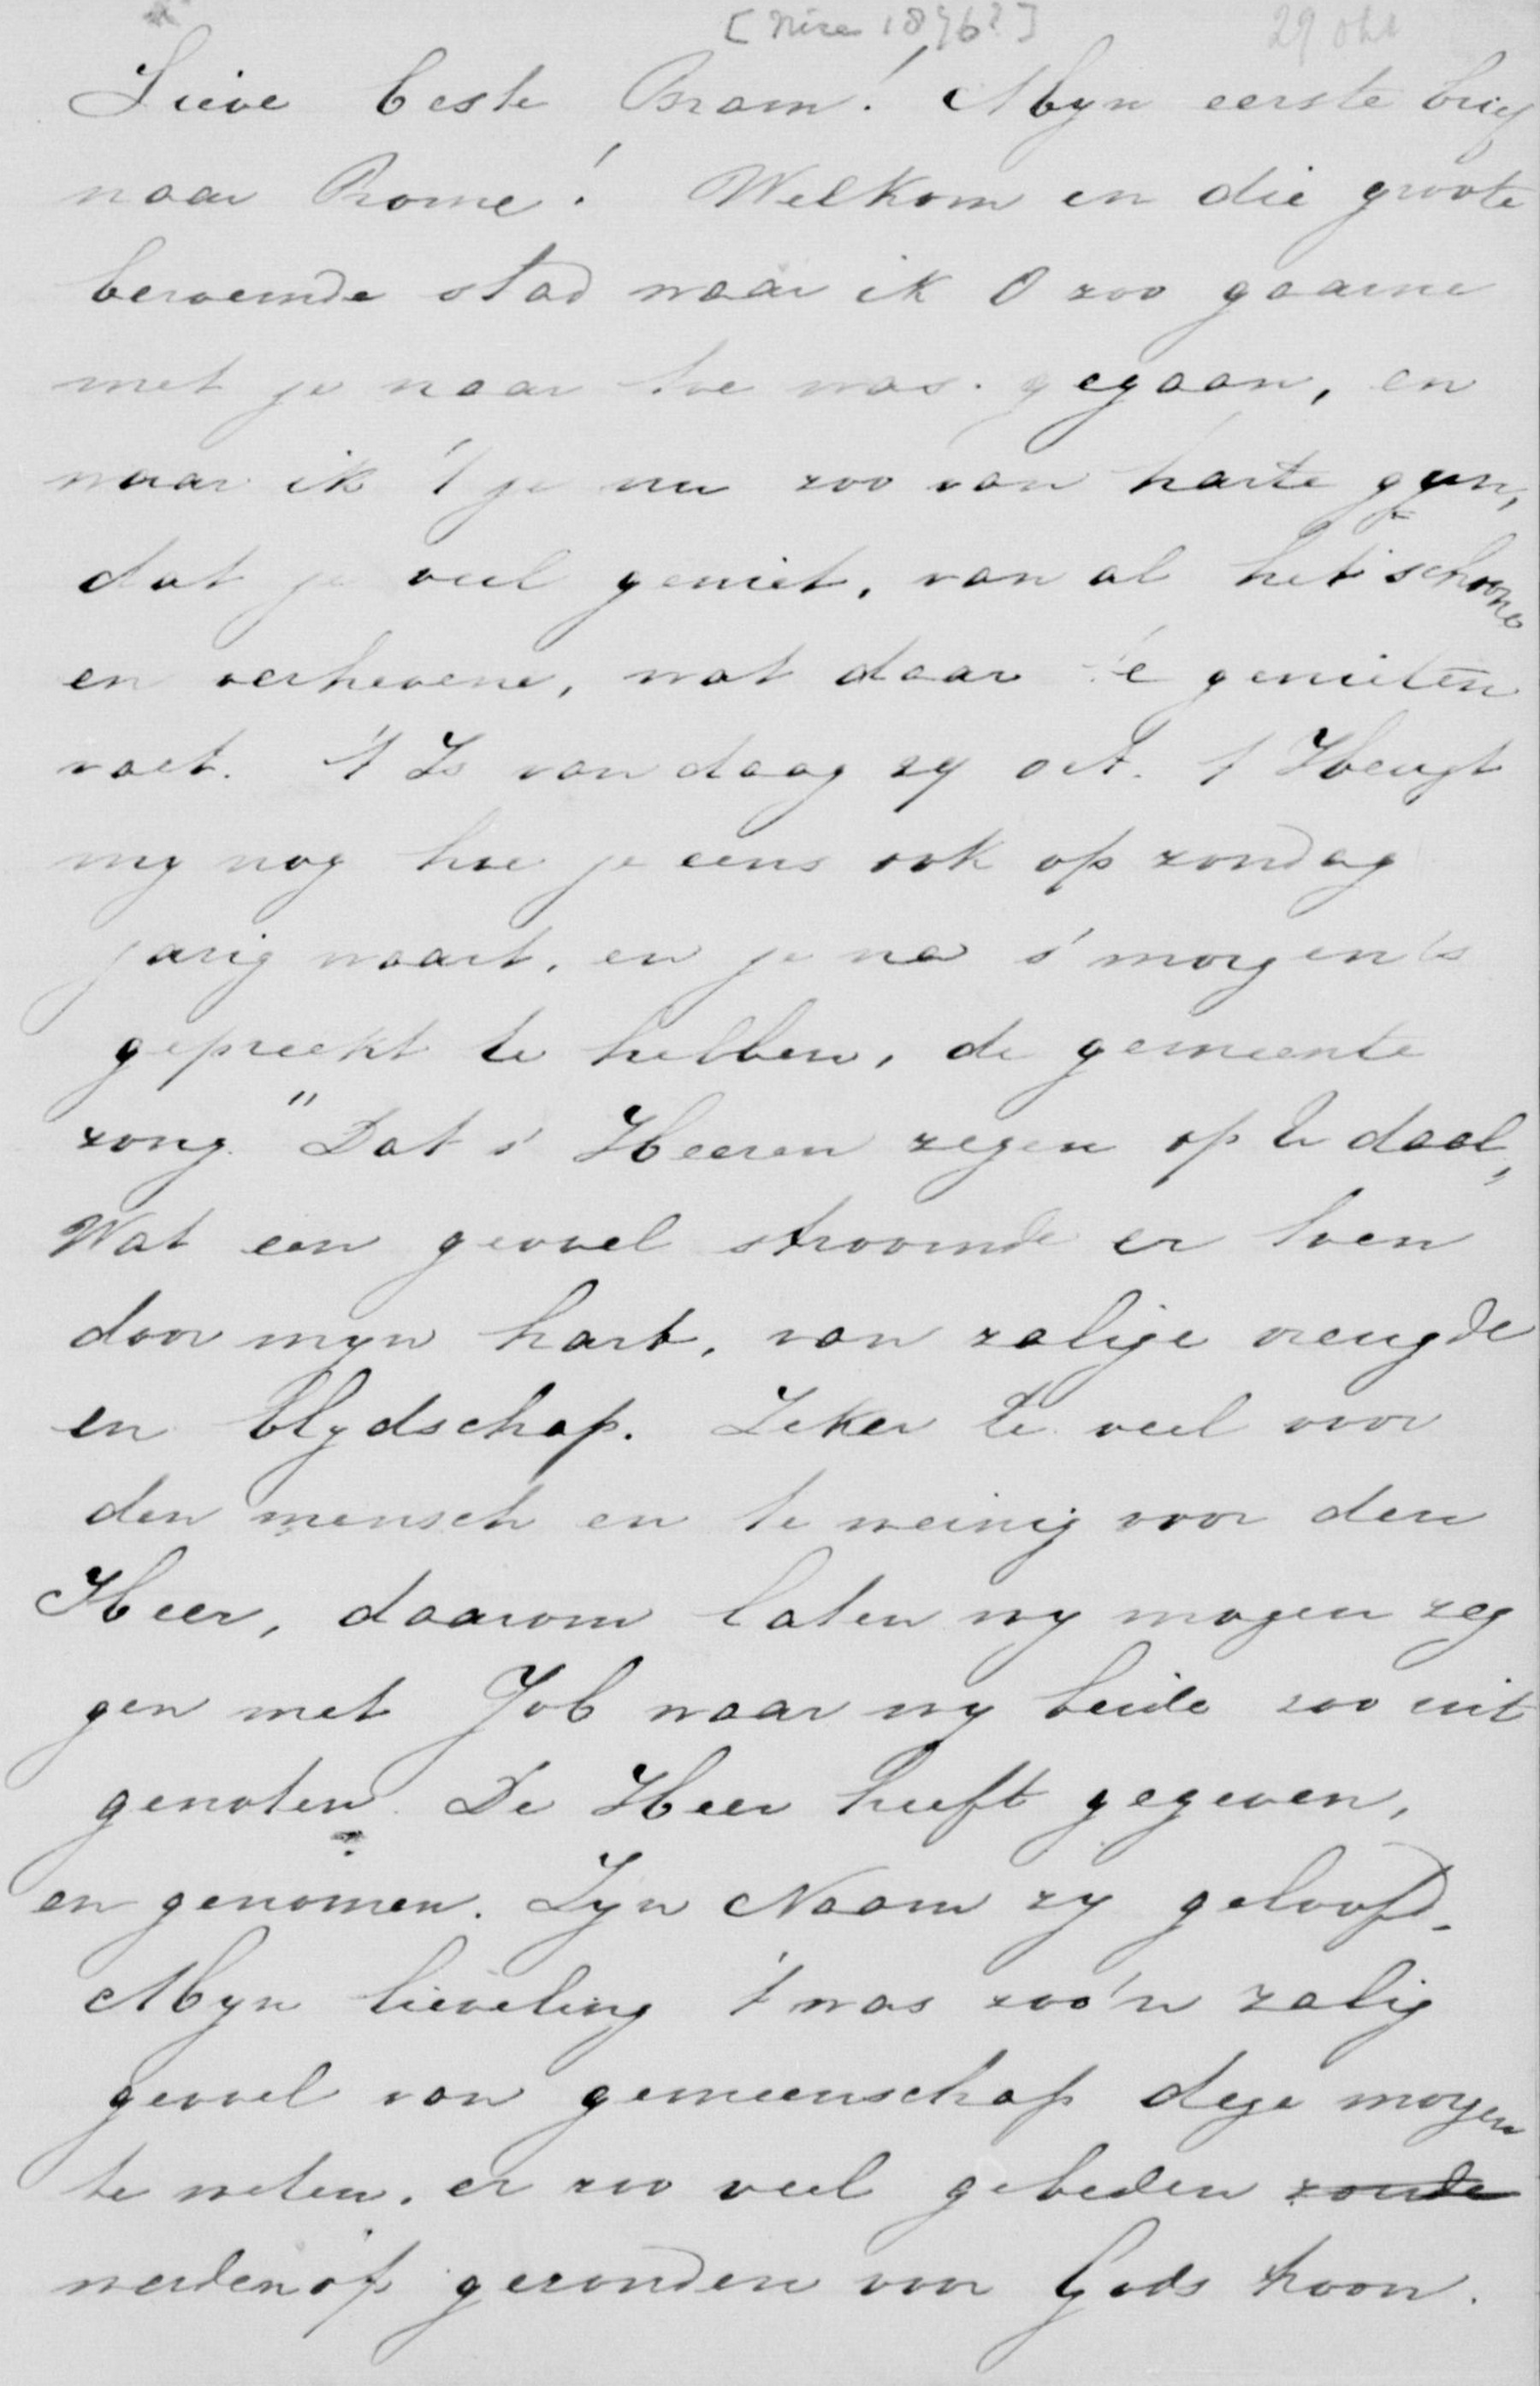 [Nice 1896?] 29 Okt
Lieve beste Bram! Myn eerste brief
naar Rome! Welkom en die groote
beroemde stad waar ik O zoo gaarne
met je naar toe was gegaan, en
waar ik 't je nu zoo van harte gun,
dat je veel geniet, van al het schoone
en verhevene, wat daar te genieten
valt. 't Is van daag 29 oct. t Heugt
my nog hoe je eens ook op zondag
jarig waart, en je na s'morgents
gepreekt te hebben, de gemeente
zong "Dat s' Heeren zegen op U daal,
Wat een gevoel stroomde er toen
door myn hart, van zalige vreugde
en blydschap. Zeker te veel voor
den mensch en te weinig voor den
Heer, daarom laten wy mogen zeg
gen met Job waar wy beide zoo uit
genoten. De Heer heeft gegeven,
en genomen. Zyn Naam zy geloofd.
Myn lieveling 't was zoo'n zalig
gevoel van gemeenschap deze morgen
te weten, er zoo veel gebeden zoude
werden op gezonden voor Gods troon.